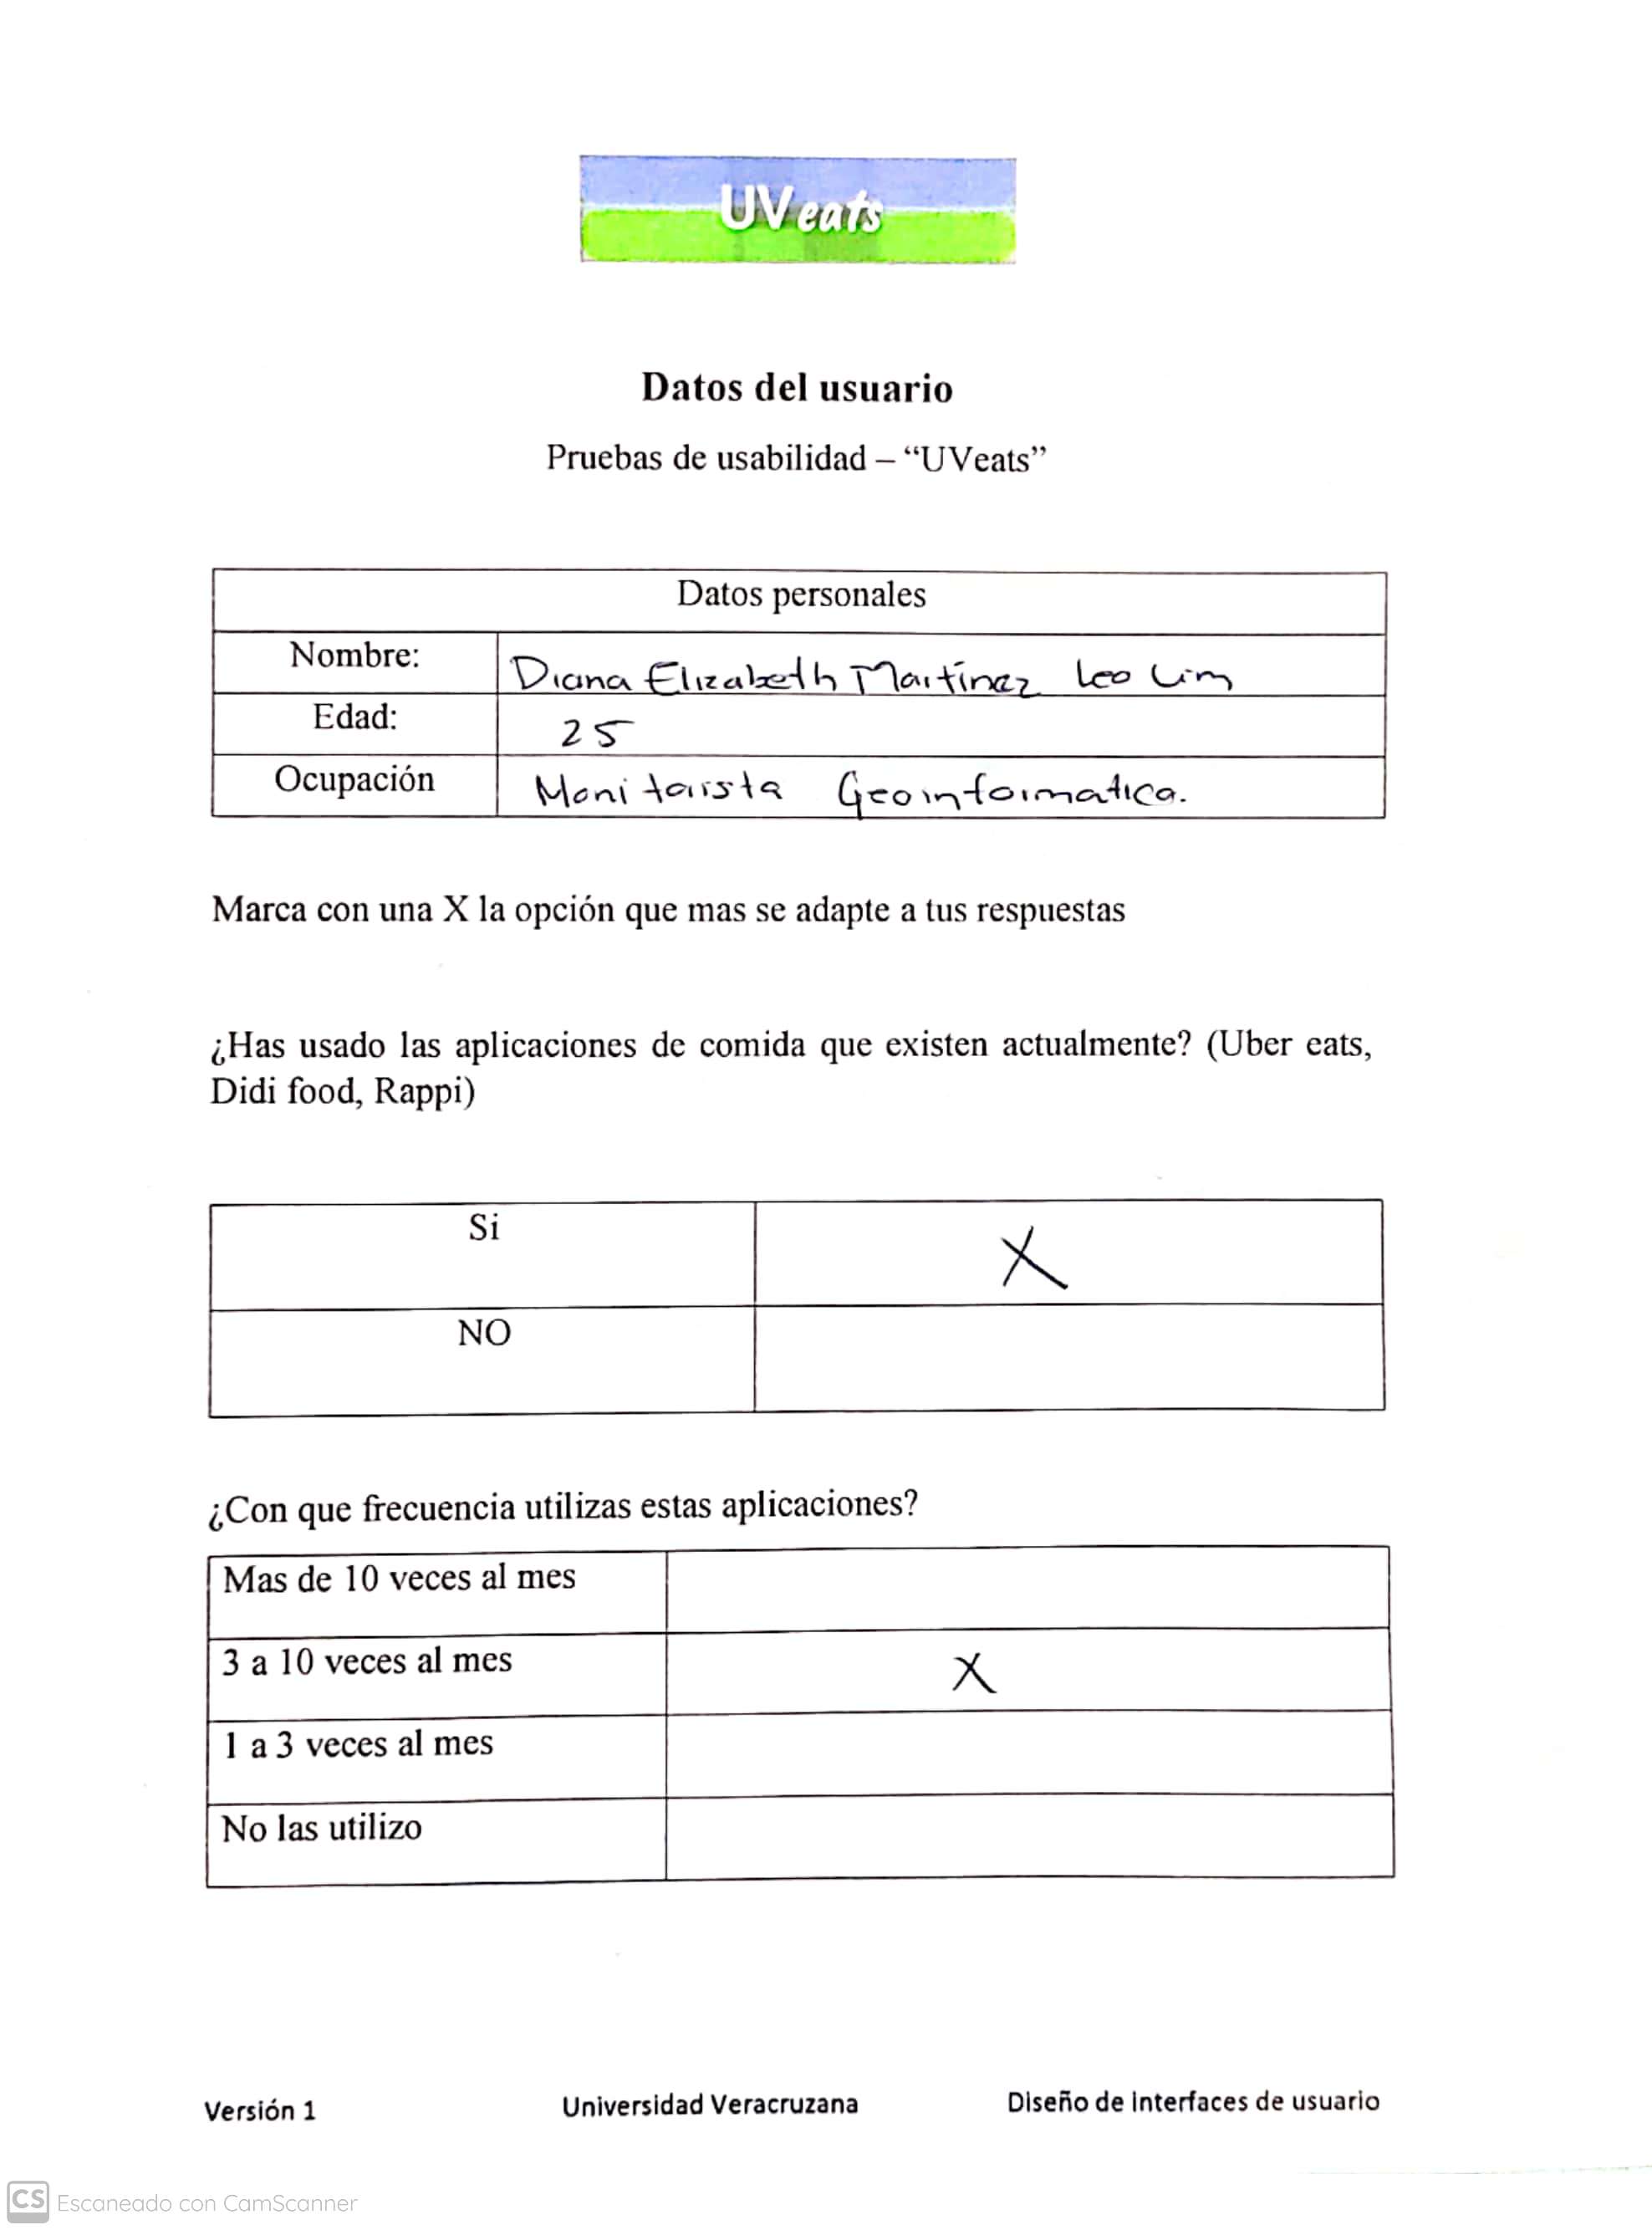 UVeats
Datos del usuario
Pruebas de usabilidad – “UVeats”
Datos personales
Nombre: Diana Elizabeth Martínez Leo Lim
Edad: 25
Ocupación Monitorista Geoinformatica.
Marca con una X la opción que mas se adapte a tus respuestas
¿Has usado las aplicaciones de comida que existen actualmente? (Uber eats,
Didi food, Rappi)
Si X
NO
¿Con que frecuencia utilizas estas aplicaciones?
Mas de 10 veces al mes
3 a 10 veces al mes X
1 a 3 veces al mes
No las utilizo
Versión 1 Universidad Veracruzana Diseño de interfaces de usuario
CS Escaneado con CamScanner